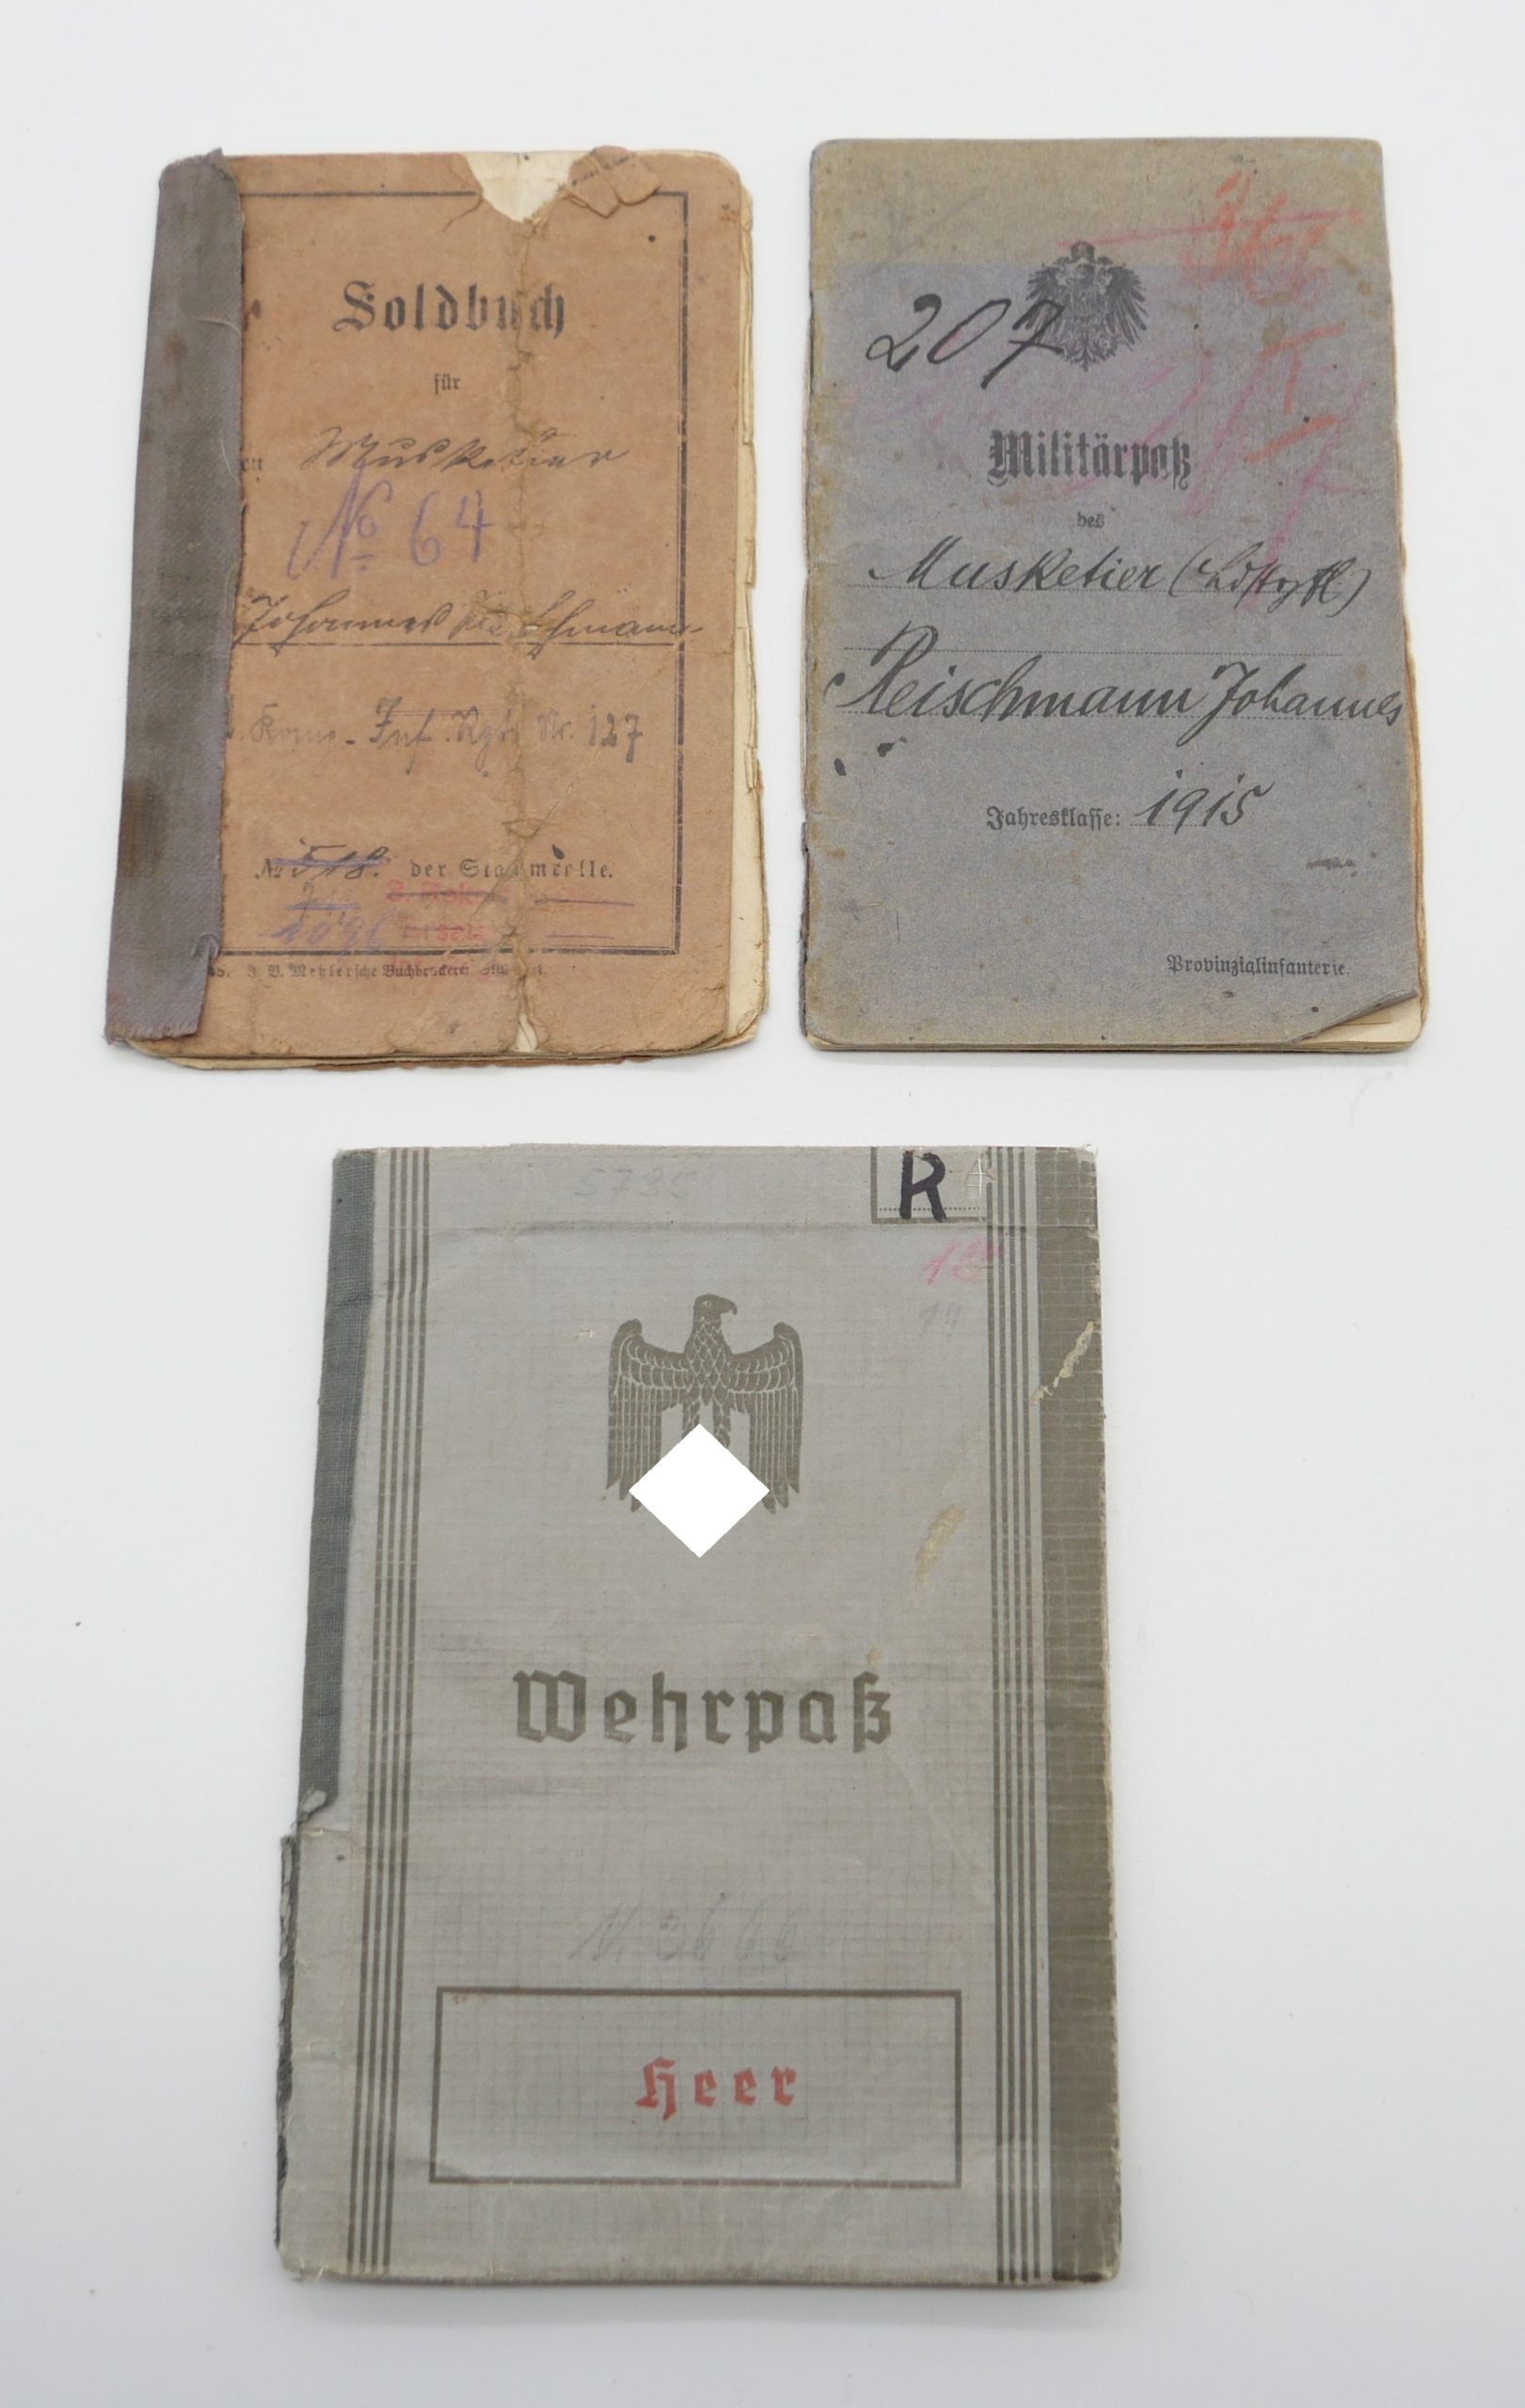 Soldbuch
für
en Musketier
No 64
Johannes
Komp. Inf. Rgt. Nr. 127
No 518. der Stammrolle.
1096
J. B. Metzlersche Buchdruckerei
207
Militärpaß
des
Musketier (Ldstpfl)
Reischmann Johannes
Jahresklasse: 1915
Provinzialinfanterie.
5735
R
79
Wehrpaß
Heer